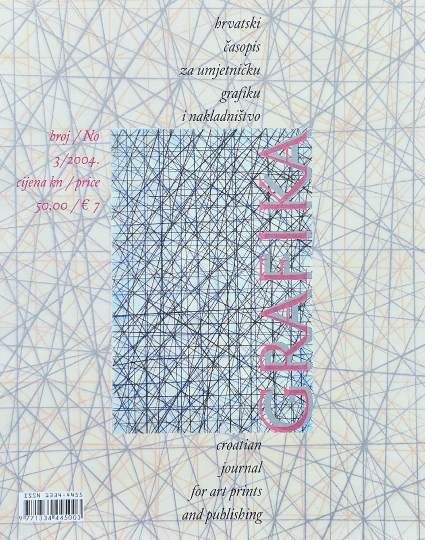 hrvatski
časopis
za umjetničku
grafiku
i nakladništvo
broj / No
3/2004.
cijena kn / price
50,00 / € 7
GRAFIKA
croatian
journal
for art prints
and publishing
ISSN 1334-4455
9 771334 445003